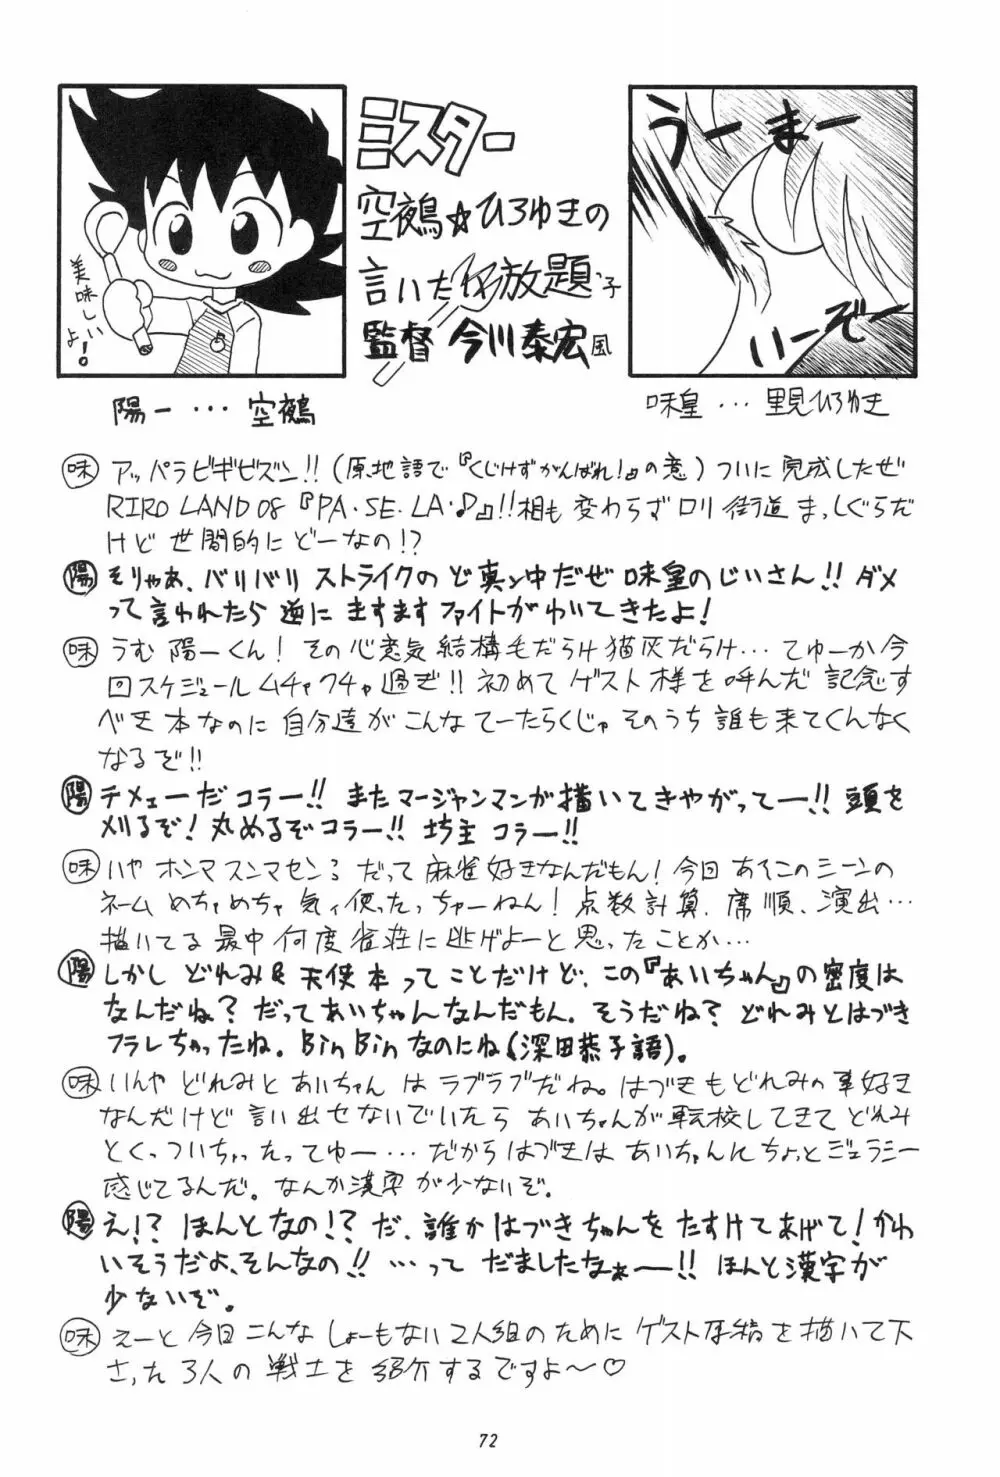 美味しい
よ!
ミスター
空鵺☆ひろゆきの
言いたい放題
監督 今川泰宏風
うーまー
いーぞー
陽一…空鵺
味皇…里見ひろゆき
味 アッパラビギビズン!!(原地語で『くじけずがんばれ!』の意)ついに完成したぜ
RIRO LAND 08『PA・SE・LA・♪』!!相も変わらずロリ街道まっしぐらだ
けど世間的にどーなの!?
陽 そりゃあ、バリバリストライクのど真ン中だぜ味皇のじいさん!!ダメ
って言われたら逆にますますファイトがわいてきたよ!
味 うむ陽一くん!その心意気結構毛だらけ猫灰だらけ…てゆーか今
回スケジュールムチャクチャ過ぎ!!初めてゲスト様を呼んだ記念す
べき本なのに自分達がこんなてーたらくじゃそのうち誰も来てくんなく
なるぞ!!
陽 チメェーだコラー!!またマージャンマンガ描いてきやがってー!!頭を
刈るぞ!丸めるぞコラー!!坊主コラー!!
味 いやホンマスンマセン だって麻雀好きなんだもん!今回あそこのシーンの
ネームめちゃめちゃ気ィ使ったっちゅーねん!点数計算、席順、演出…
描いてる最中何度雀荘に逃げよーと思ったことか…
陽 しかしどれみ&天使本ってことだけど、この『あいちゃん』の密度は
なんだね?だってあいちゃんなんだもん。そうだね?どれみとはづき
フラレちゃったね。BinBinなのにね(深田恭子語)。
味 いんやどれみとあいちゃんはラブラブだね。はづきもどれみの事好き
なんだけど言い出せないでいたらあいちゃんが転校してきてどれみ
とくっついちゃったってゆー…だからはづきはあいちゃんにちょっとジェラシー
感じてるんだ。なんか漢字が少ないぞ。
陽 え!?ほんとなの!?だ、誰かはづきちゃんをたすけてあげて!かわ
いそうだよ、そんなの!!…ってだましたなぁー!!ほんと漢字が
少ないぞ。
味 えーと今回こんなしょーもない2人組のためにゲスト原稿を描いて下
さった3人の戦士を紹介するですよ〜♡
72